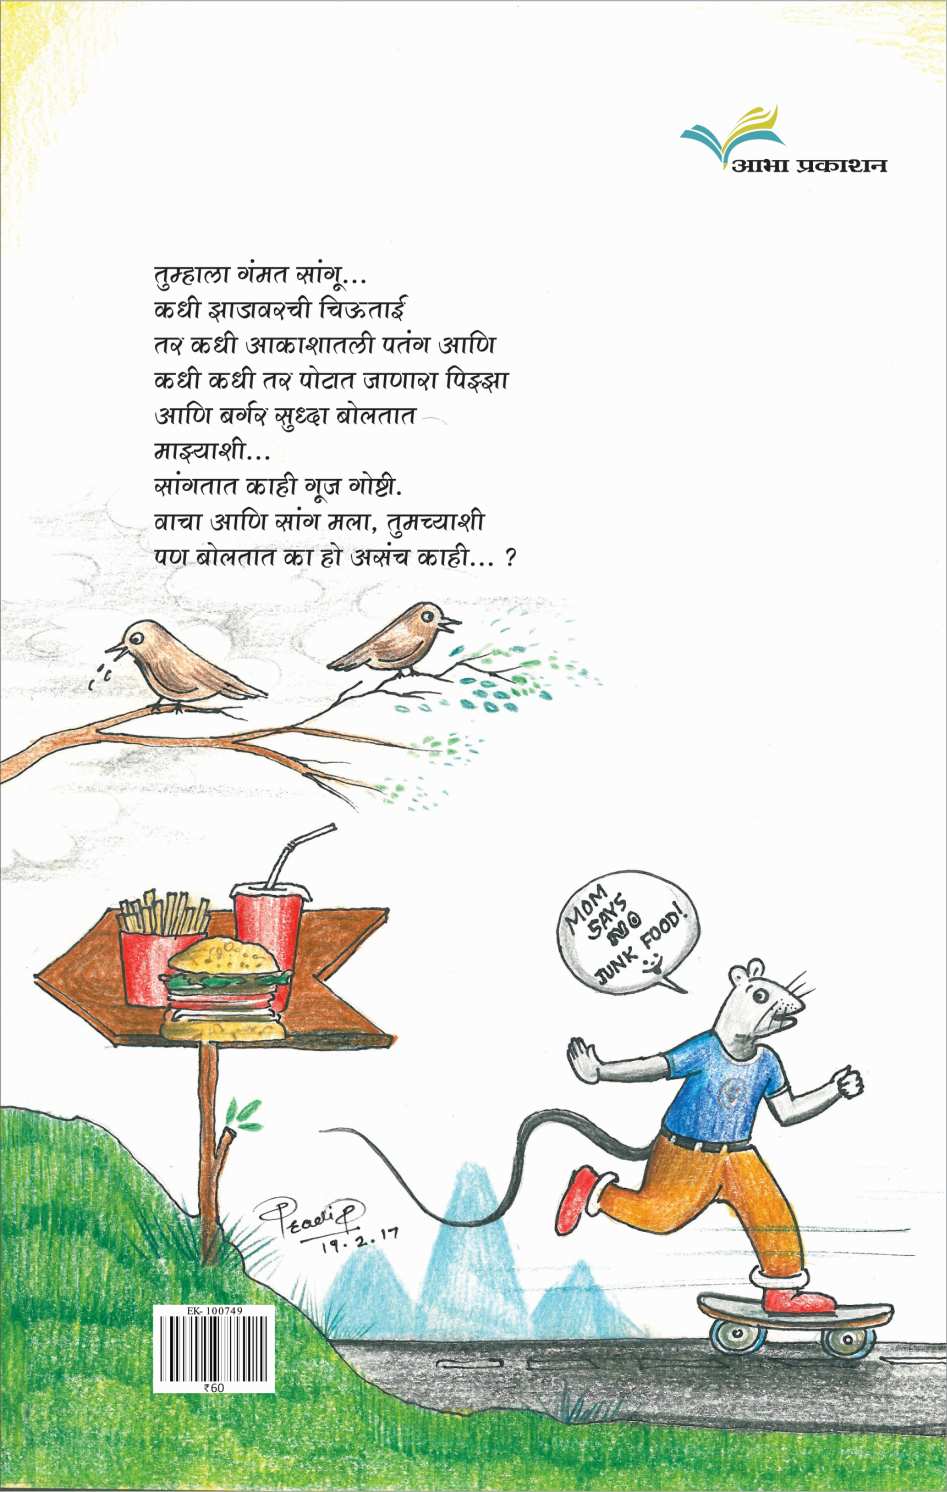 आभा प्रकाशन
तुम्हाला गंमत सांगू...
कधी झाडावरची चिऊताई
तर कधी आकाशातली पतंग आणि
कधी कधी तर पोटात जाणारा पिझ्झा
आणि बर्गर सुध्दा बोलतात
माझ्याशी...
सांगतात काही गूज गोष्टी.
वाचा आणि सांग मला, तुमच्याशी
पण बोलतात का हो असंच काही... ?
MOM
SAYS
NO
JUNK FOOD!
Pradip
19.2.17
EK-100749
₹60